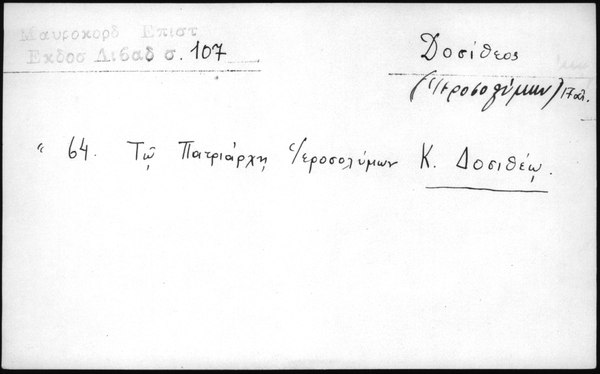 Μαυροκορδ Επιστ
Εκδοσ Λιβαδ σ. 107
Δοσίθεος
(Ἱεροσολύμων) 17 αἰ.
" 64. Τῷ Πατριάρχῃ Ἱεροσολύμων Κ. Δοσιθέῳ.